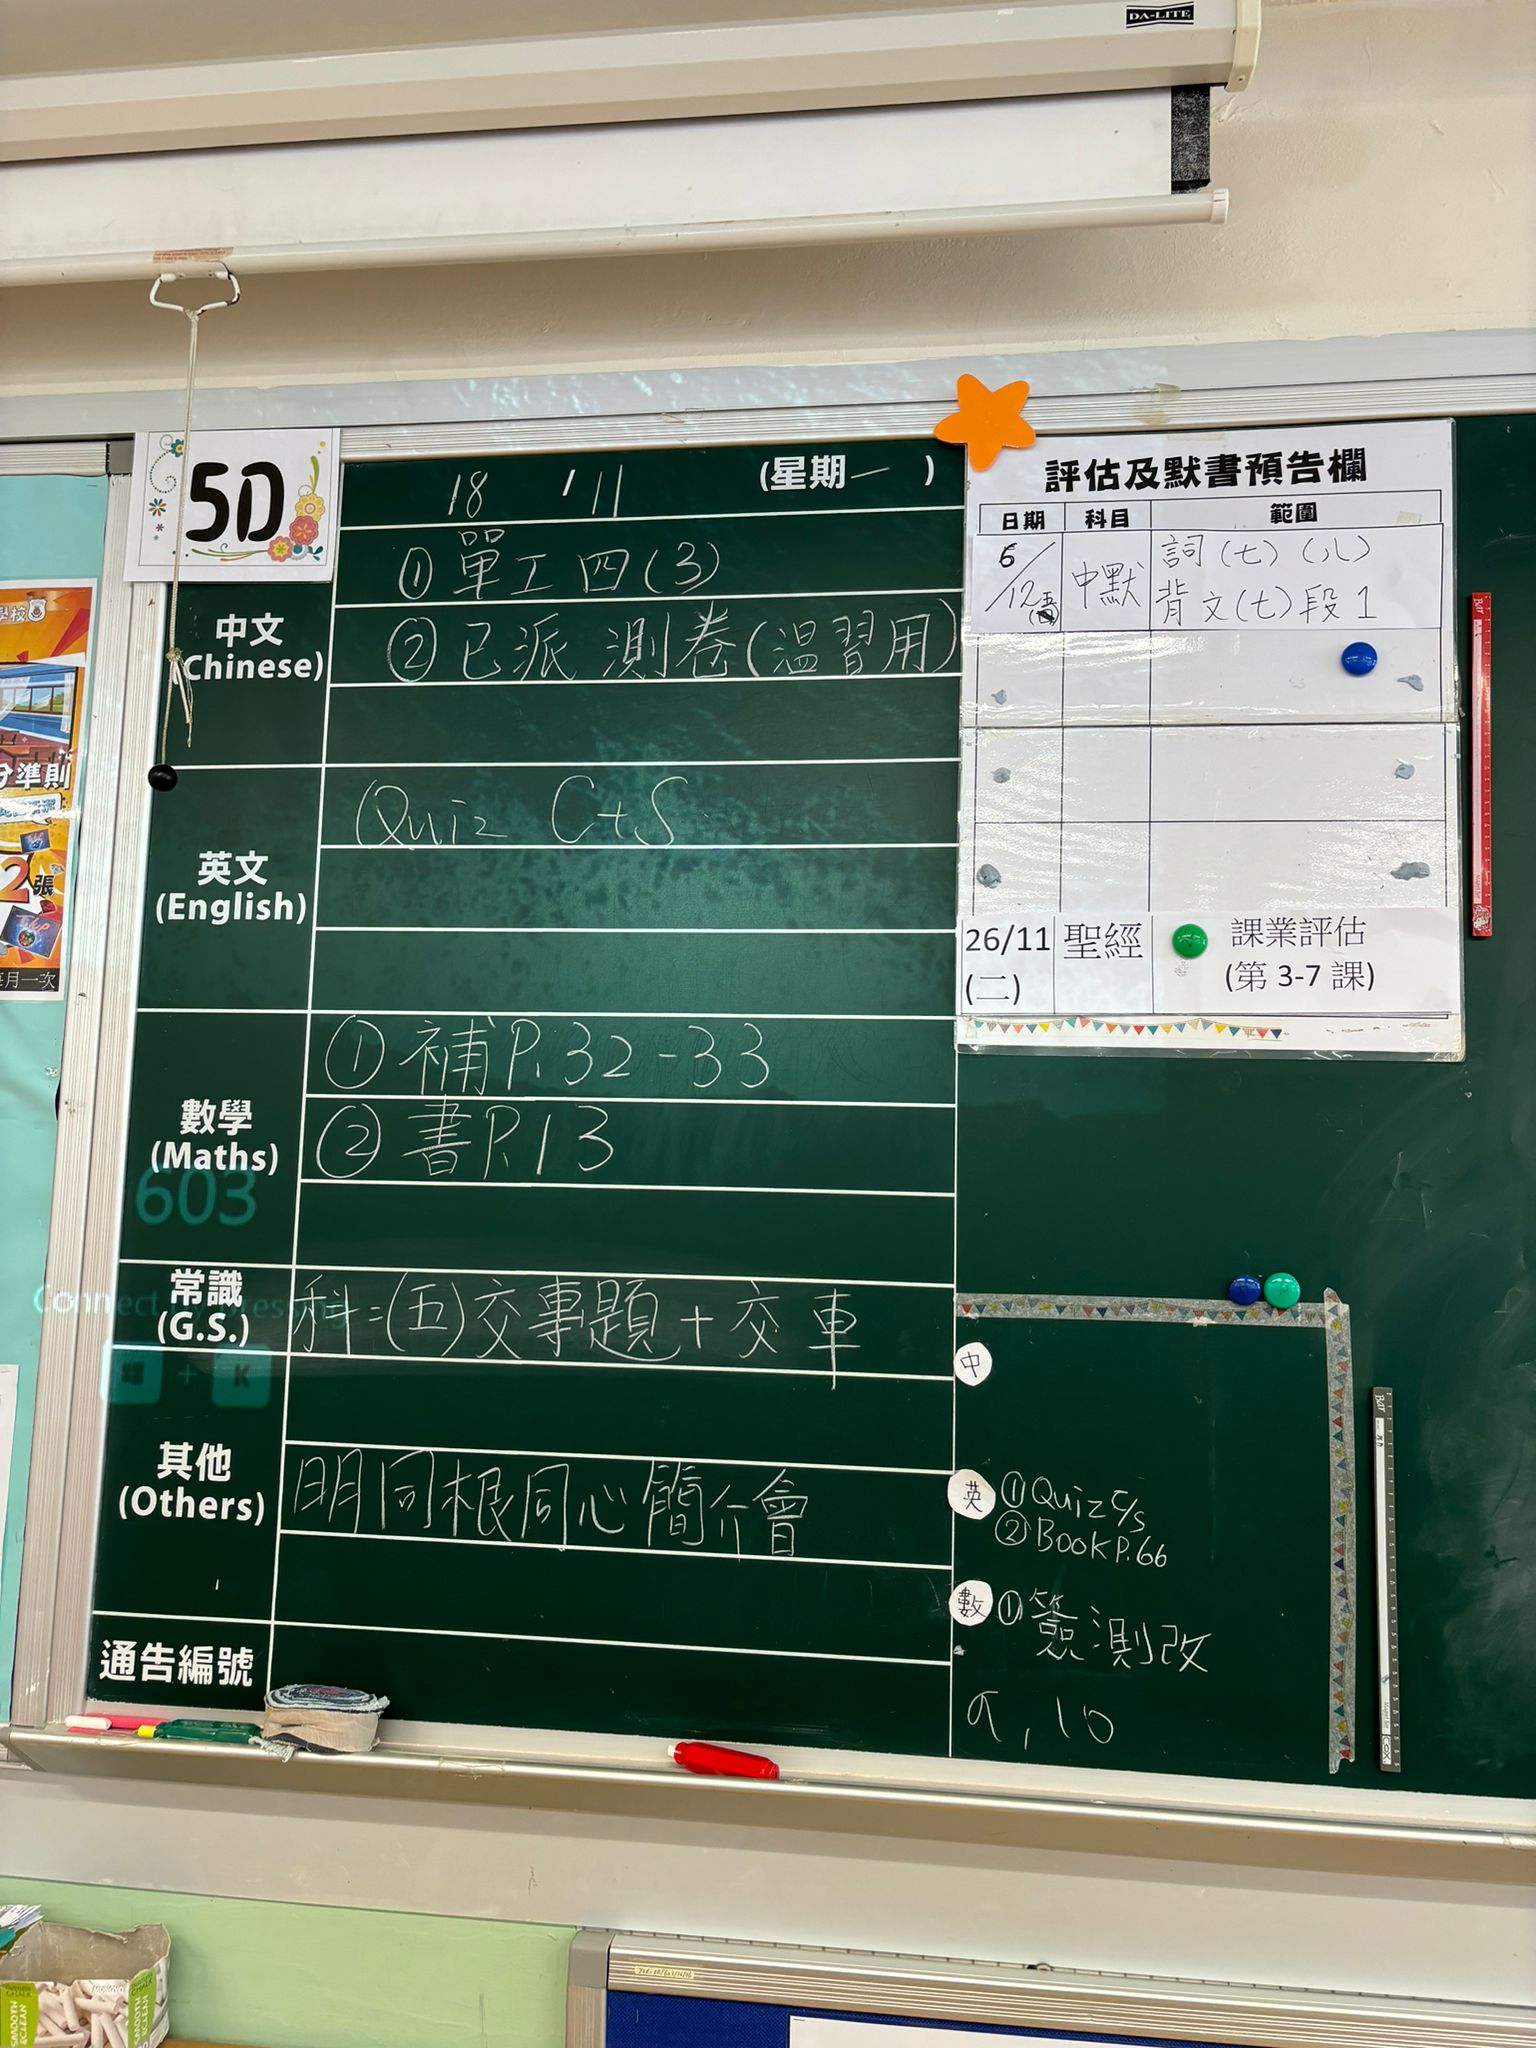 DA-LITE
5D
18 / 11 (星期一)
中文
(Chinese)
① 單工四(3)
② 已派 測卷(温習用)
英文
(English)
Quiz C+S
數學
(Maths)
① 補P.32-33
② 書P.13
603
常識
(G.S.)
科=(五)交專題+交車
其他
(Others)
明同根同心簡介會
通告編號
評估及默書預告欄
日期 科目 範圍
6/12 中默 詞(七)(八)
背文(七)段1
26/11 聖經 課業評估
(二) (第 3-7 課)
中
英 ① Quiz C/S
② BOOK P.66
數 ① 簽測改
10
分準則
2張
每月一次
+ K